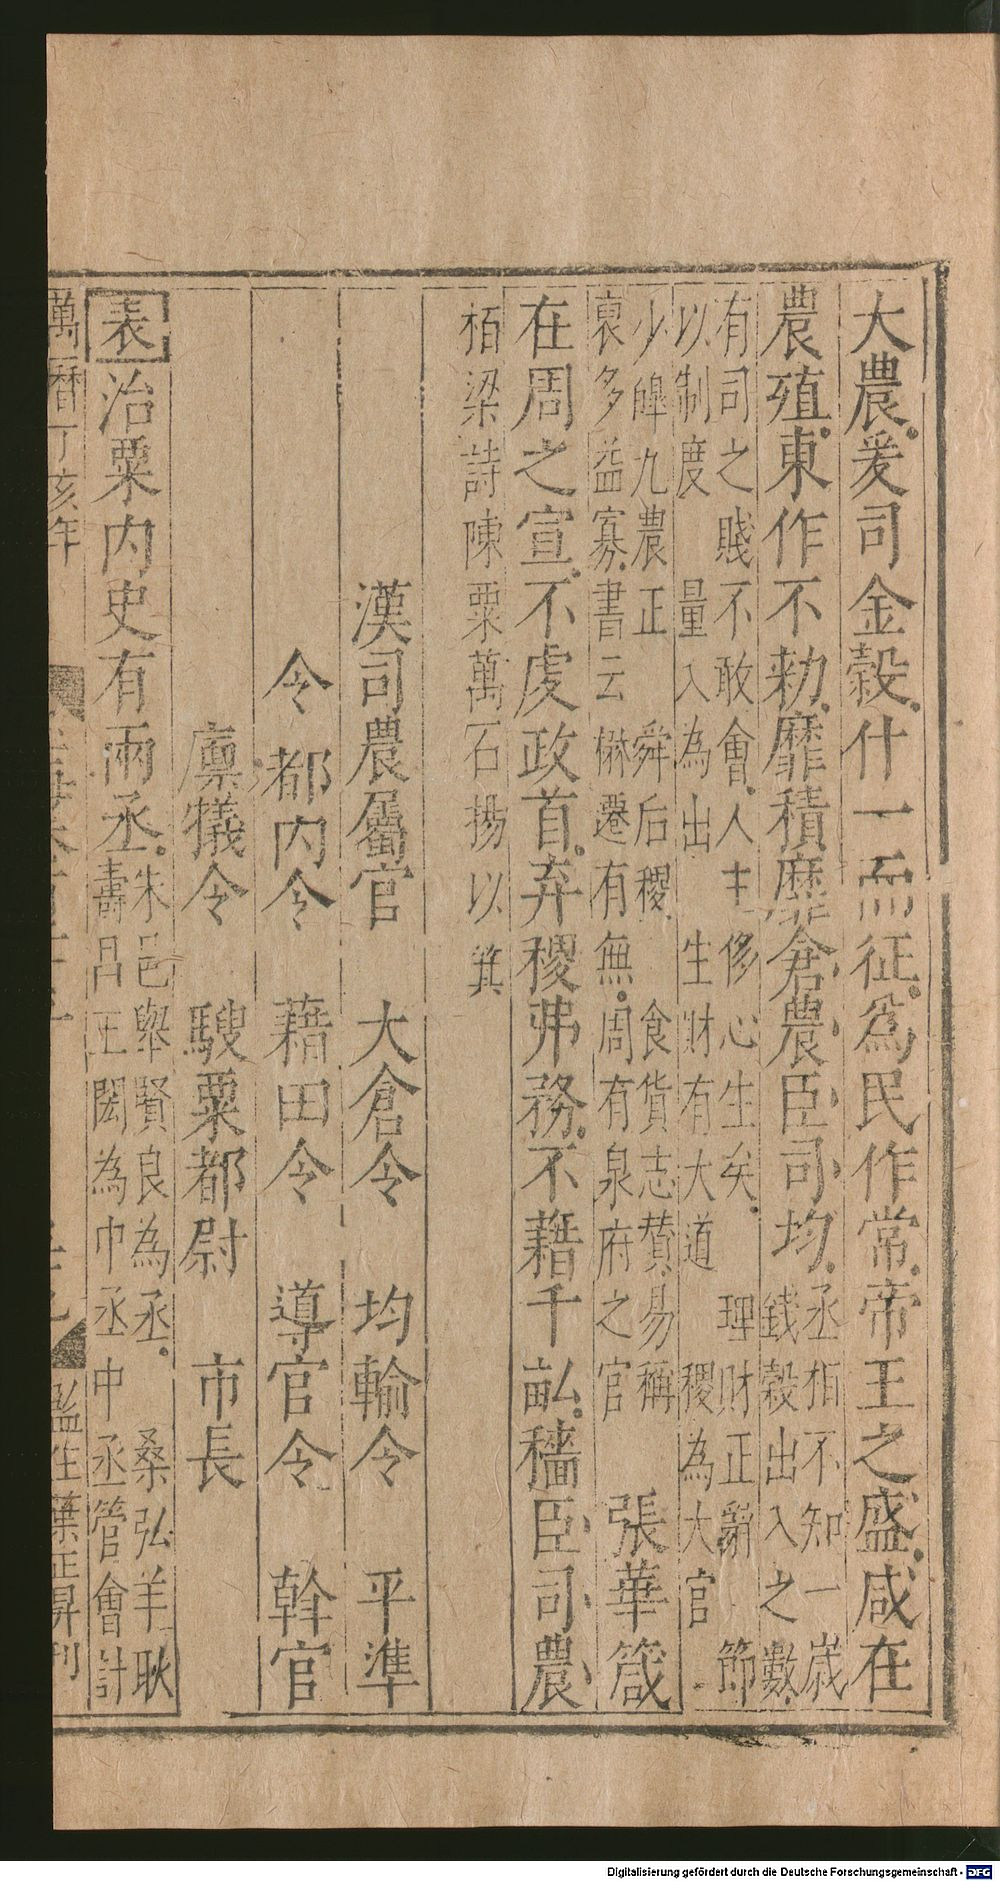 大農爰司金穀什一而征爲民作常帝王之盛咸在
農殖東作不勑靡積靡倉農臣司均丞相不知一歲
錢穀出入之數
有司之賤不敢會人主侈心生矣　理財正辭　節
以制度　量入為出　生財有大道　稷為大官
少皥九農正　舜后稷　食貨志贊易稱
裒多益寡書云楙遷有無周有泉府之官　張華箴
在周之宣不虔政首弃稷弗務不藉千畝穡臣司農
栢梁詩陳粟萬石揚以箕
漢司農屬官　大倉令　均輸令　平準
令　都內令　藉田令　導官令　斡官
廩犧令　騪粟都尉　市長
表治粟內史有兩丞朱邑舉賢良為丞　桑弘羊耿
壽昌王閎為中丞中丞管會計
萬曆丁亥年
監生葉正昇刊
Digitalisierung gefördert durch die Deutsche Forschungsgemeinschaft - DFG